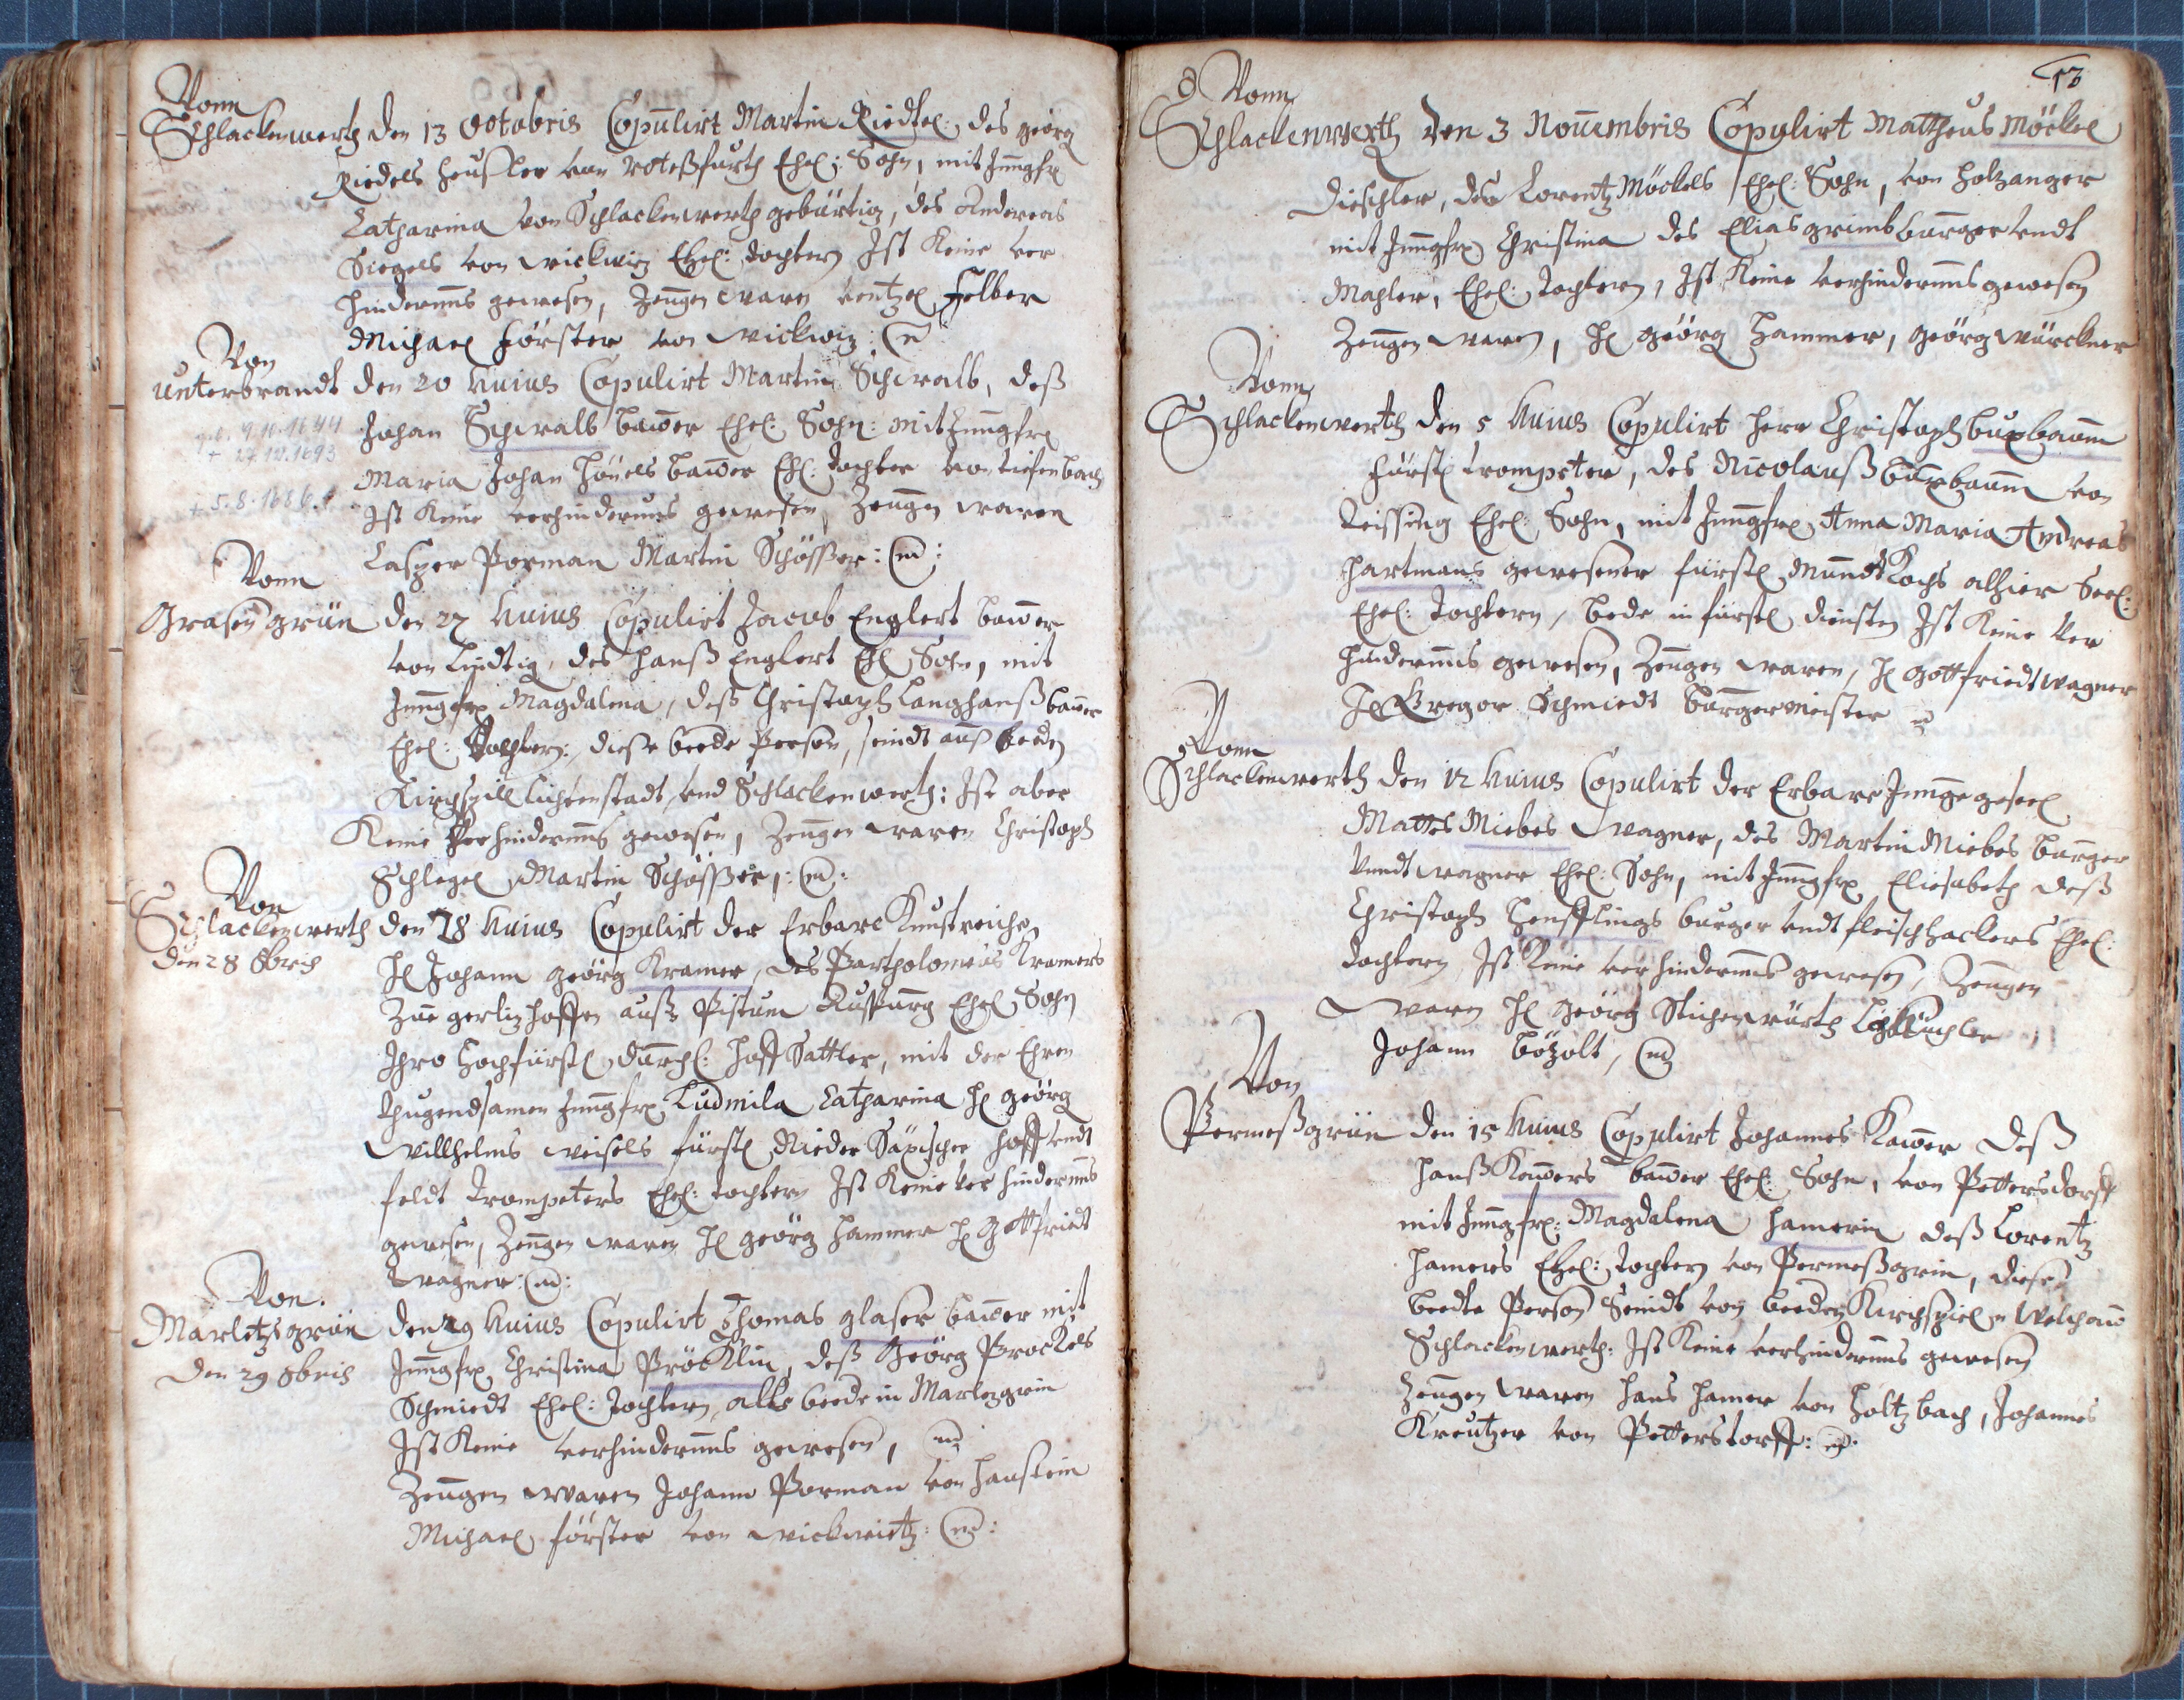 Vonn
Schlackenwerth den 13 Octobris Copulirt Martin Riedtel: des georg
Riedels heußler von roteßfurth Ehel: Sohn, mit Jungfr
Catharina von Schlackenwerth gebürtig, des Andereas
Siegels von wickwiz Ehel: dochtern Ist Keine ver
hindernus gewesen, Zeugen waren wentzel Felber
Michael förster von wickwiz:
Von
Unterbrandt den 20 huius Copulirt Martin Schwalb, deß
Johan Schwalb bawer Ehel: Sohn: mit Jungfr
geb. 9.11.1644
+ 27.12.1693
Maria Johan höuels bawer Ehl: dochter von tiefenbach
+ 5.8.1686
Ist Keine verhindernus gewesen, Zeugen waren
Casper Porman Martin Schösser:
Vonn
Grasengrün den 27 huius Copulirt Jacob Englert bawer
von Lindtig, des hanß Englert Ehl Sohn, mit
Jungfr Magdalena, deß Christoph Langhanß bawer
Ehel: Dochtern: diese beede Person, seindt auß beeden
Kirchspill Lichtenstadt, vnd Schlackenwerth: Ist aber
Keine Verhindernus gewesen, Zeugen waren Christoph
Schlegel Martin Schösser:
Von
Schlackenwerth den 28 huius Copulirt der Erbare Kunstreiche
den 28 8bris
H Johann georg Kramer, des Partholomeus Kramers
Zue gerlizhoffen auß Pistum Ehel Sohn
Ihro Hochfürstl Durchl: hoff Sattler, mit der Ehren
thugendsamen Jungfr Ludmila Catharina H georg
Willhelms weisels fürstl Nieder Säxischer hoff vndt
feldt trompeters Ehel: tochtern Ist Keine verhindernus
gewesen, Zeugen waren H georg hammer H Gottfriedt
wagner:
Von.
Marletzgrün den 29 huius Copulirt Thomas glaser bawer mit
den 29 8bris
Jungfr Christina Pröcklin, deß Georg Prockels
Schmiedt Ehel: Tochtern, alle beede in Marlezgrün
Ist Keine verhindernus gewesen,
Zeugen waren Johann Porman von haustein
Michael förster von wickwitz:
13
Vonn
Schlackenwerth den 3 Nouembris Copulirt Mattheus Möckel
dieschler, des Lorentz Möckels Ehel: Sohn, von holzanger
mit Jungfr Christina des Elias grimb burger vndt
Mahler, Ehel: Tochtern, Ist Keine verhindernus gewesen
Zeugen waren, H georg hammer, georg würckner
Vonn
Schlackenwerth den 5 huius Copulirt herr Christoph buxbaum
fürstl trompeter, des Nicolauß buxbaum von
teissing Ehel: Sohn, mit Jungfr Anna Maria Andreas
hartmans gewesener fürstl Mundt Kochs alhier Seel:
Ehel: Tochtern, bede in fürstl diensten Ist Keine ver
hindernus gewesen, Zeugen waren, H gottfriedt wagner
H Gregor Schmiedt burgermeister
Vonn
Schlackenwerth den 12 huius Copulirt der Erbare Junge gesel
Mattes Miebes wagner, des Martin Miebes burger
vndt wagner Ehel: Sohn, mit Jungfr Eliesabeth deß
Christoph burger vndt fleischhackers Ehel:
dochtern, Ist Keine verhindernus gewesen, Zeugen
waren H georg Stichenwürth
Johann bözolt,
Von
Permeßgrün den 15 huius Copulirt Johannes Kawer deß
hanß Kawers bawer Ehel: Sohn, von Pettersdorff
mit Jungfr: Magdalena hamerin deß Lorentz
hamers Ehel: Tochtern von Permeßgrün, diese
beedte Person Seindt von beeden Kirchspiel Welchau
Schlackenwerth: Ist Keine verhindernus gewesen
Zeugen waren hans hamer von holtzbach, Johannes
Kreutzer von Petterstorff: